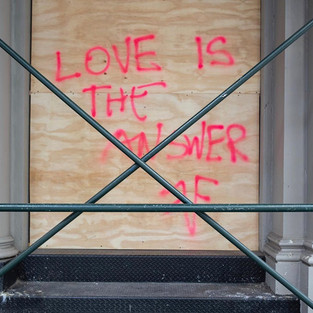 LOVE IS
THE
ANSWER
AF